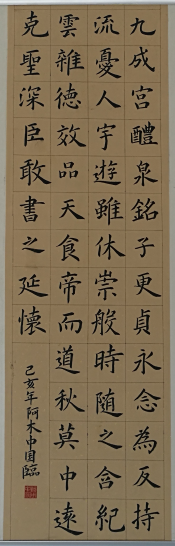 九成宮醴泉銘子更貞永念為反持
流憂人宇遊雖休崇般時随之含紀
雲雜德效品天食帝而道秋莫中遠
克聖深臣敢書之延懷
己亥年阿木中国臨